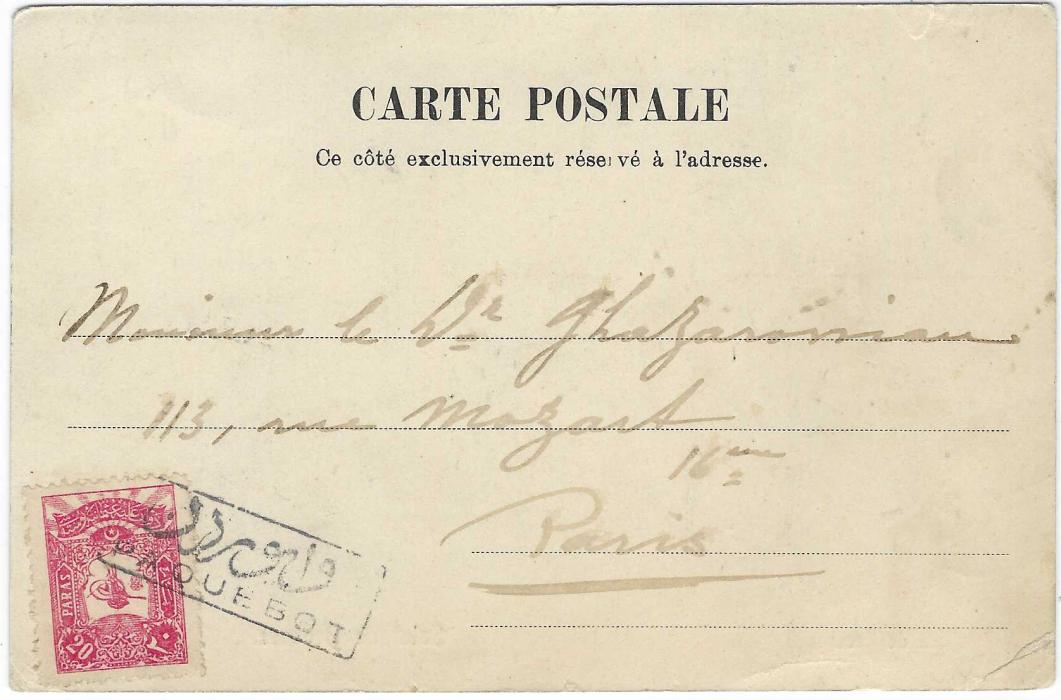 CARTE POSTALE
Ce côté exclusivement réservé à l'adresse.
Monsieur le Dr Ghazarossian
113, rue Mozart
16ème
Paris
PAQUEBOT
PARAS
20 ٢٠